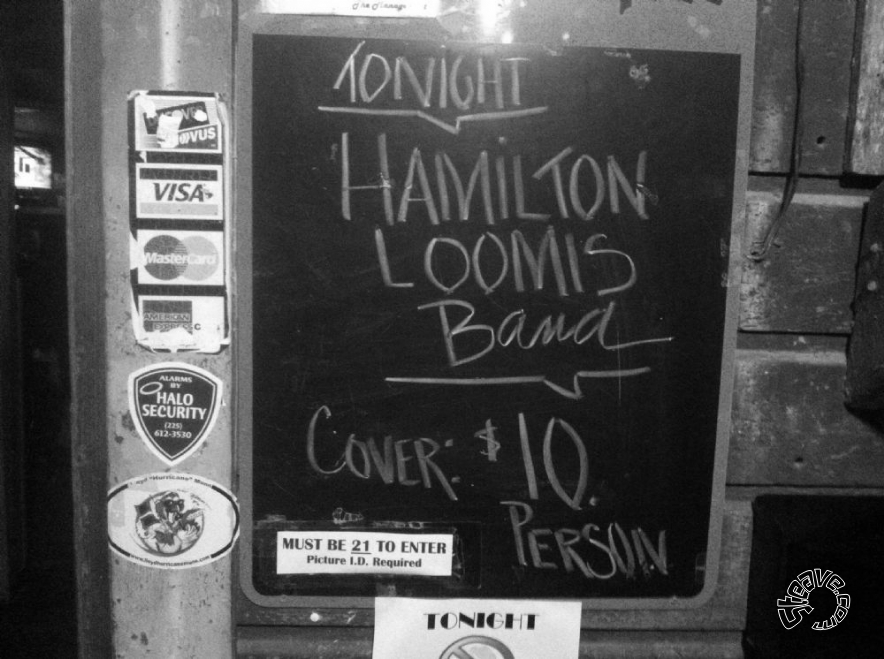 TONIGHT
HAMILTON
LOOMIS
Band
COVER: $10.
PERSON
MUST BE 21 TO ENTER
Picture I.D. Required
TONIGHT
VISA
MasterCard
AMERICAN
ALARMS
BY
HALO
SECURITY
(225)
612-3530
"Hurricane"
steave.com